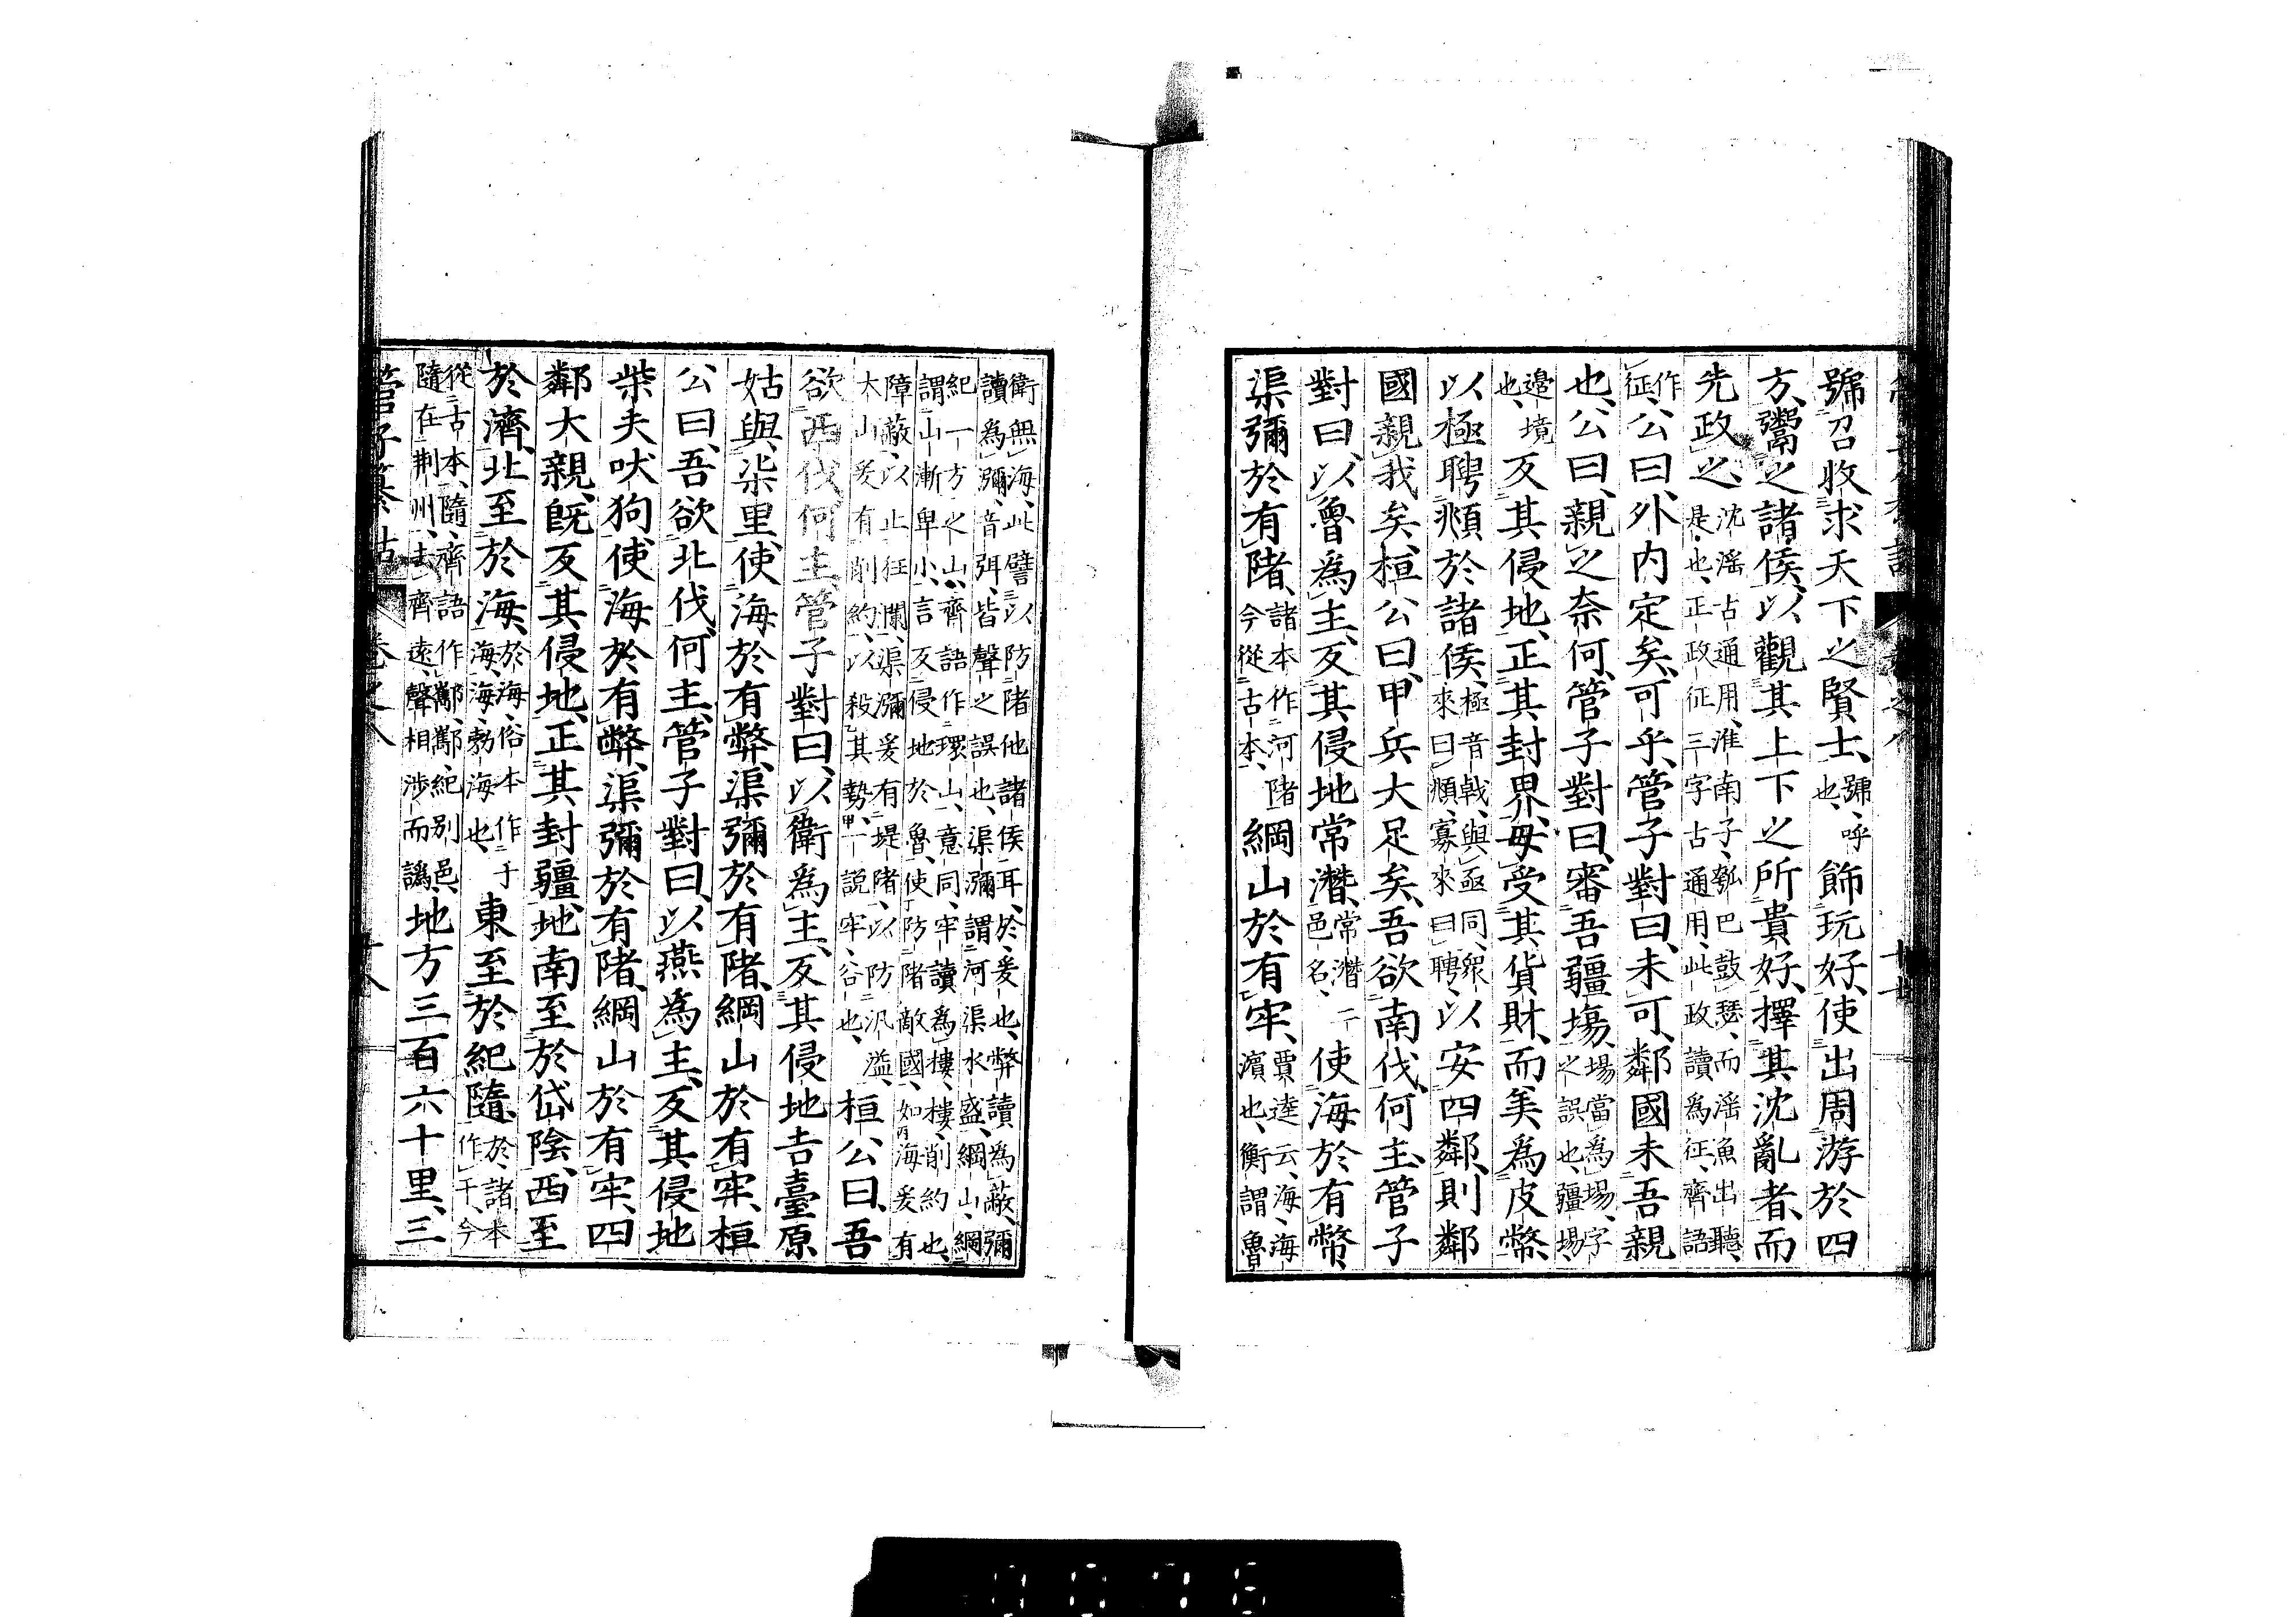 號召收求天下之賢士、號、呼也、飾玩好、使出周游於四
方、鬻之諸侯、以觀其上下之所貴好、擇其沈亂者、而
先政之、沈滛古通用、淮南子、瓠巴鼓瑟、而滛魚出聽、是也、正政征三字古通用、此政讀為征、齊語
作征、公曰、外内定矣、可乎、管子對曰、未可、鄰國未吾親
也、公曰、親之奈何、管子對曰、審吾疆場、場當為埸、字之誤也、疆埸、
邊境也、反其侵地、正其封界、毋受其貨財、而美為皮幣、
以極聘頫於諸侯、極音戟、與亟同、衆來曰頫、寡來曰聘、以安四鄰、則鄰
國親我矣、桓公曰、甲兵大足矣、吾欲南伐、何主、管子
對曰、以魯為主、反其侵地常潛、常潛、二邑名、使海於有幣、
渠彌於有陼、諸本作河陼、今從古本、綱山於有牢、賈逵云、海、海濱也、衡謂魯
衛無海、此譬以防陼他諸侯耳、於、爰也、弊讀為蔽、彌
讀為瀰、音弭、皆聲之誤也、渠瀰、謂河渠水盛、綱山、綱
紀一方之山、齊語作環山、意同、牢讀為樓、樓、削約也、
謂山漸卑小、言反侵地於魯、使防陼敵國、如海爰有
障蔽、以止狂瀾、渠瀰爰有堤陼、以防汎溢、
大山爰有削約、以殺其勢、一說牢、谷也、桓公曰、吾
欲西伐、何主、管子對曰、以衛為主、反其侵地吉臺原
姑與柒里、使海於有弊、渠彌於有陼、綱山於有牢、桓
公曰、吾欲北伐、何主、管子對曰、以燕為主、反其侵地
柴夫吠狗、使海於有弊、渠彌於有陼、綱山於有牢、四
鄰大親、既反其侵地、正其封疆、地南至於岱陰、西至
於濟、北至於海、於海、俗本作于海、海、勃海也、東至於紀隨、於、諸本作于、今
從古本、隨、齊語作酅、酅、紀別邑、隨在荆州、去齊遠、聲相涉而譌、地方三百六十里、三
管子纂詁 卷之八 十八